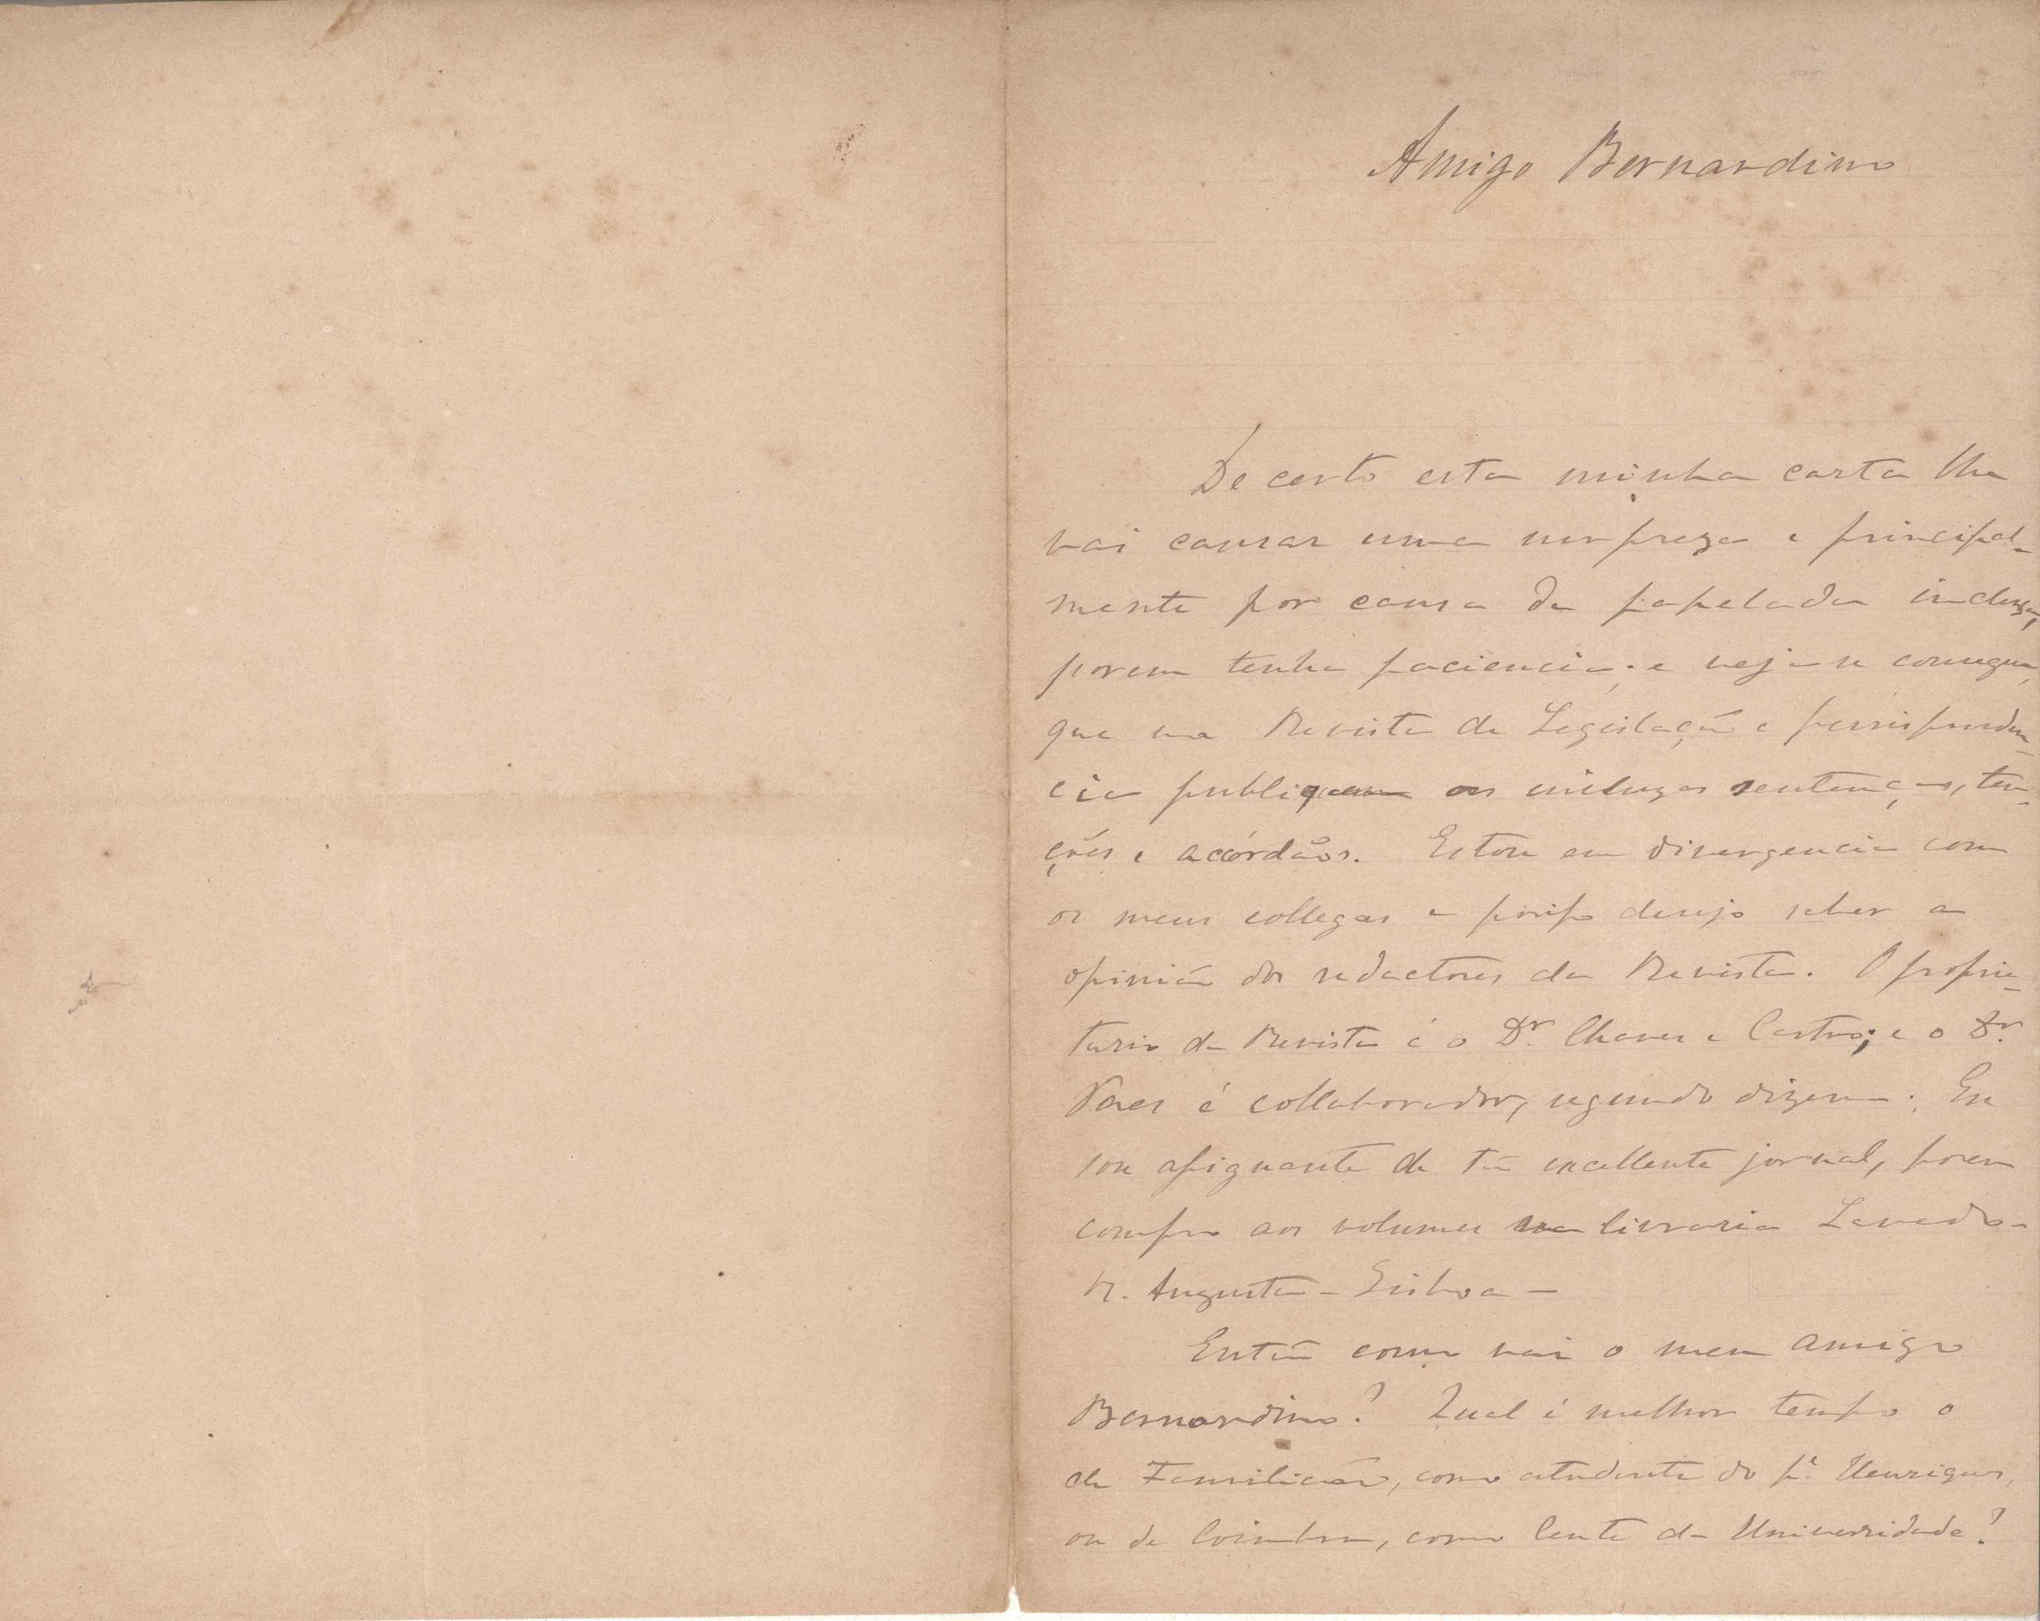 Amigo Bernardino
De certo esta minha carta lhe
vai causar uma surpreza e principal-
mente por causa da papelada incluza,
porem tenha paciencia; e veja se consegue
que na Revista de Legislação e jurisprudên-
cia publiquem as incluzas sentenças, ten-
ções e acórdãos. Estou em divergencia com
os meus collegas e por isso desejo saber a
opinião dos redactores da Revista. O proprie-
tario da Revista é o Dr. Chaves e Castro; e o Dr.
Paes é collaborador, segundo dizem. Eu
sou assignante de tão excellente jornal, porem
compro aos volumes na livraria Lavado-
R. Augusta - Lisboa -
Então como vai o meu amigo
Bernardino? Qual é melhor tempo o
de Famalicão, como estudante do Pe. Henriques,
ou de Coimbra, como lente da Universidade?